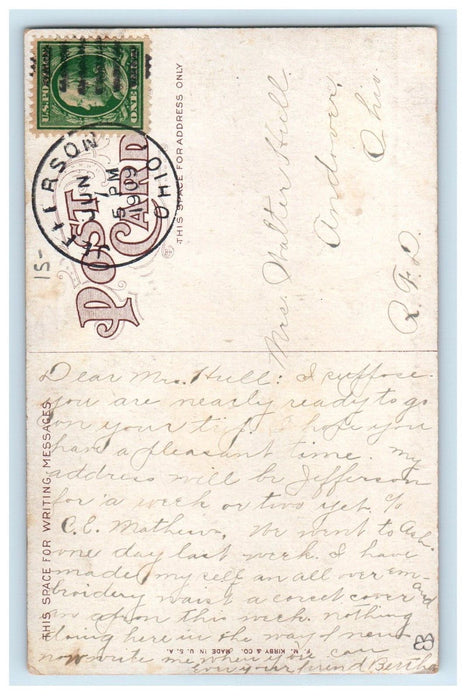 U.S. POSTAGE
ONE CENT
JEFFERSON
JUN
7
5 PM
1909
OHIO
POST CARD
THIS SPACE FOR ADDRESS ONLY
Mrs. Walter Hull.
Andover,
Ohio.
R. F. D.
15-
THIS SPACE FOR WRITING MESSAGES
Dear Mrs. Hull: I suppose
you are nearly ready to go
on your trip. I hope you
have a pleasant time. My
address will be Jefferson
for a week or two yet. c/o
C. C. Mathews. We went to Ash.
one day last week. I have
made my self an all over em-
broidery waist a corset cover and
an apron this week. nothing
doing here in the way of news
now write me when you can
Ever your friend Bertha
KIRBY & CO. MADE IN U. S. A.